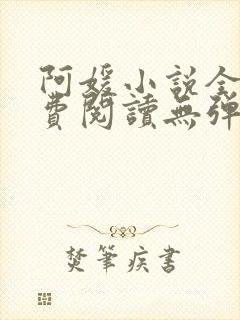 阿媛小説全
費閱讀無彈
焚筆疾書